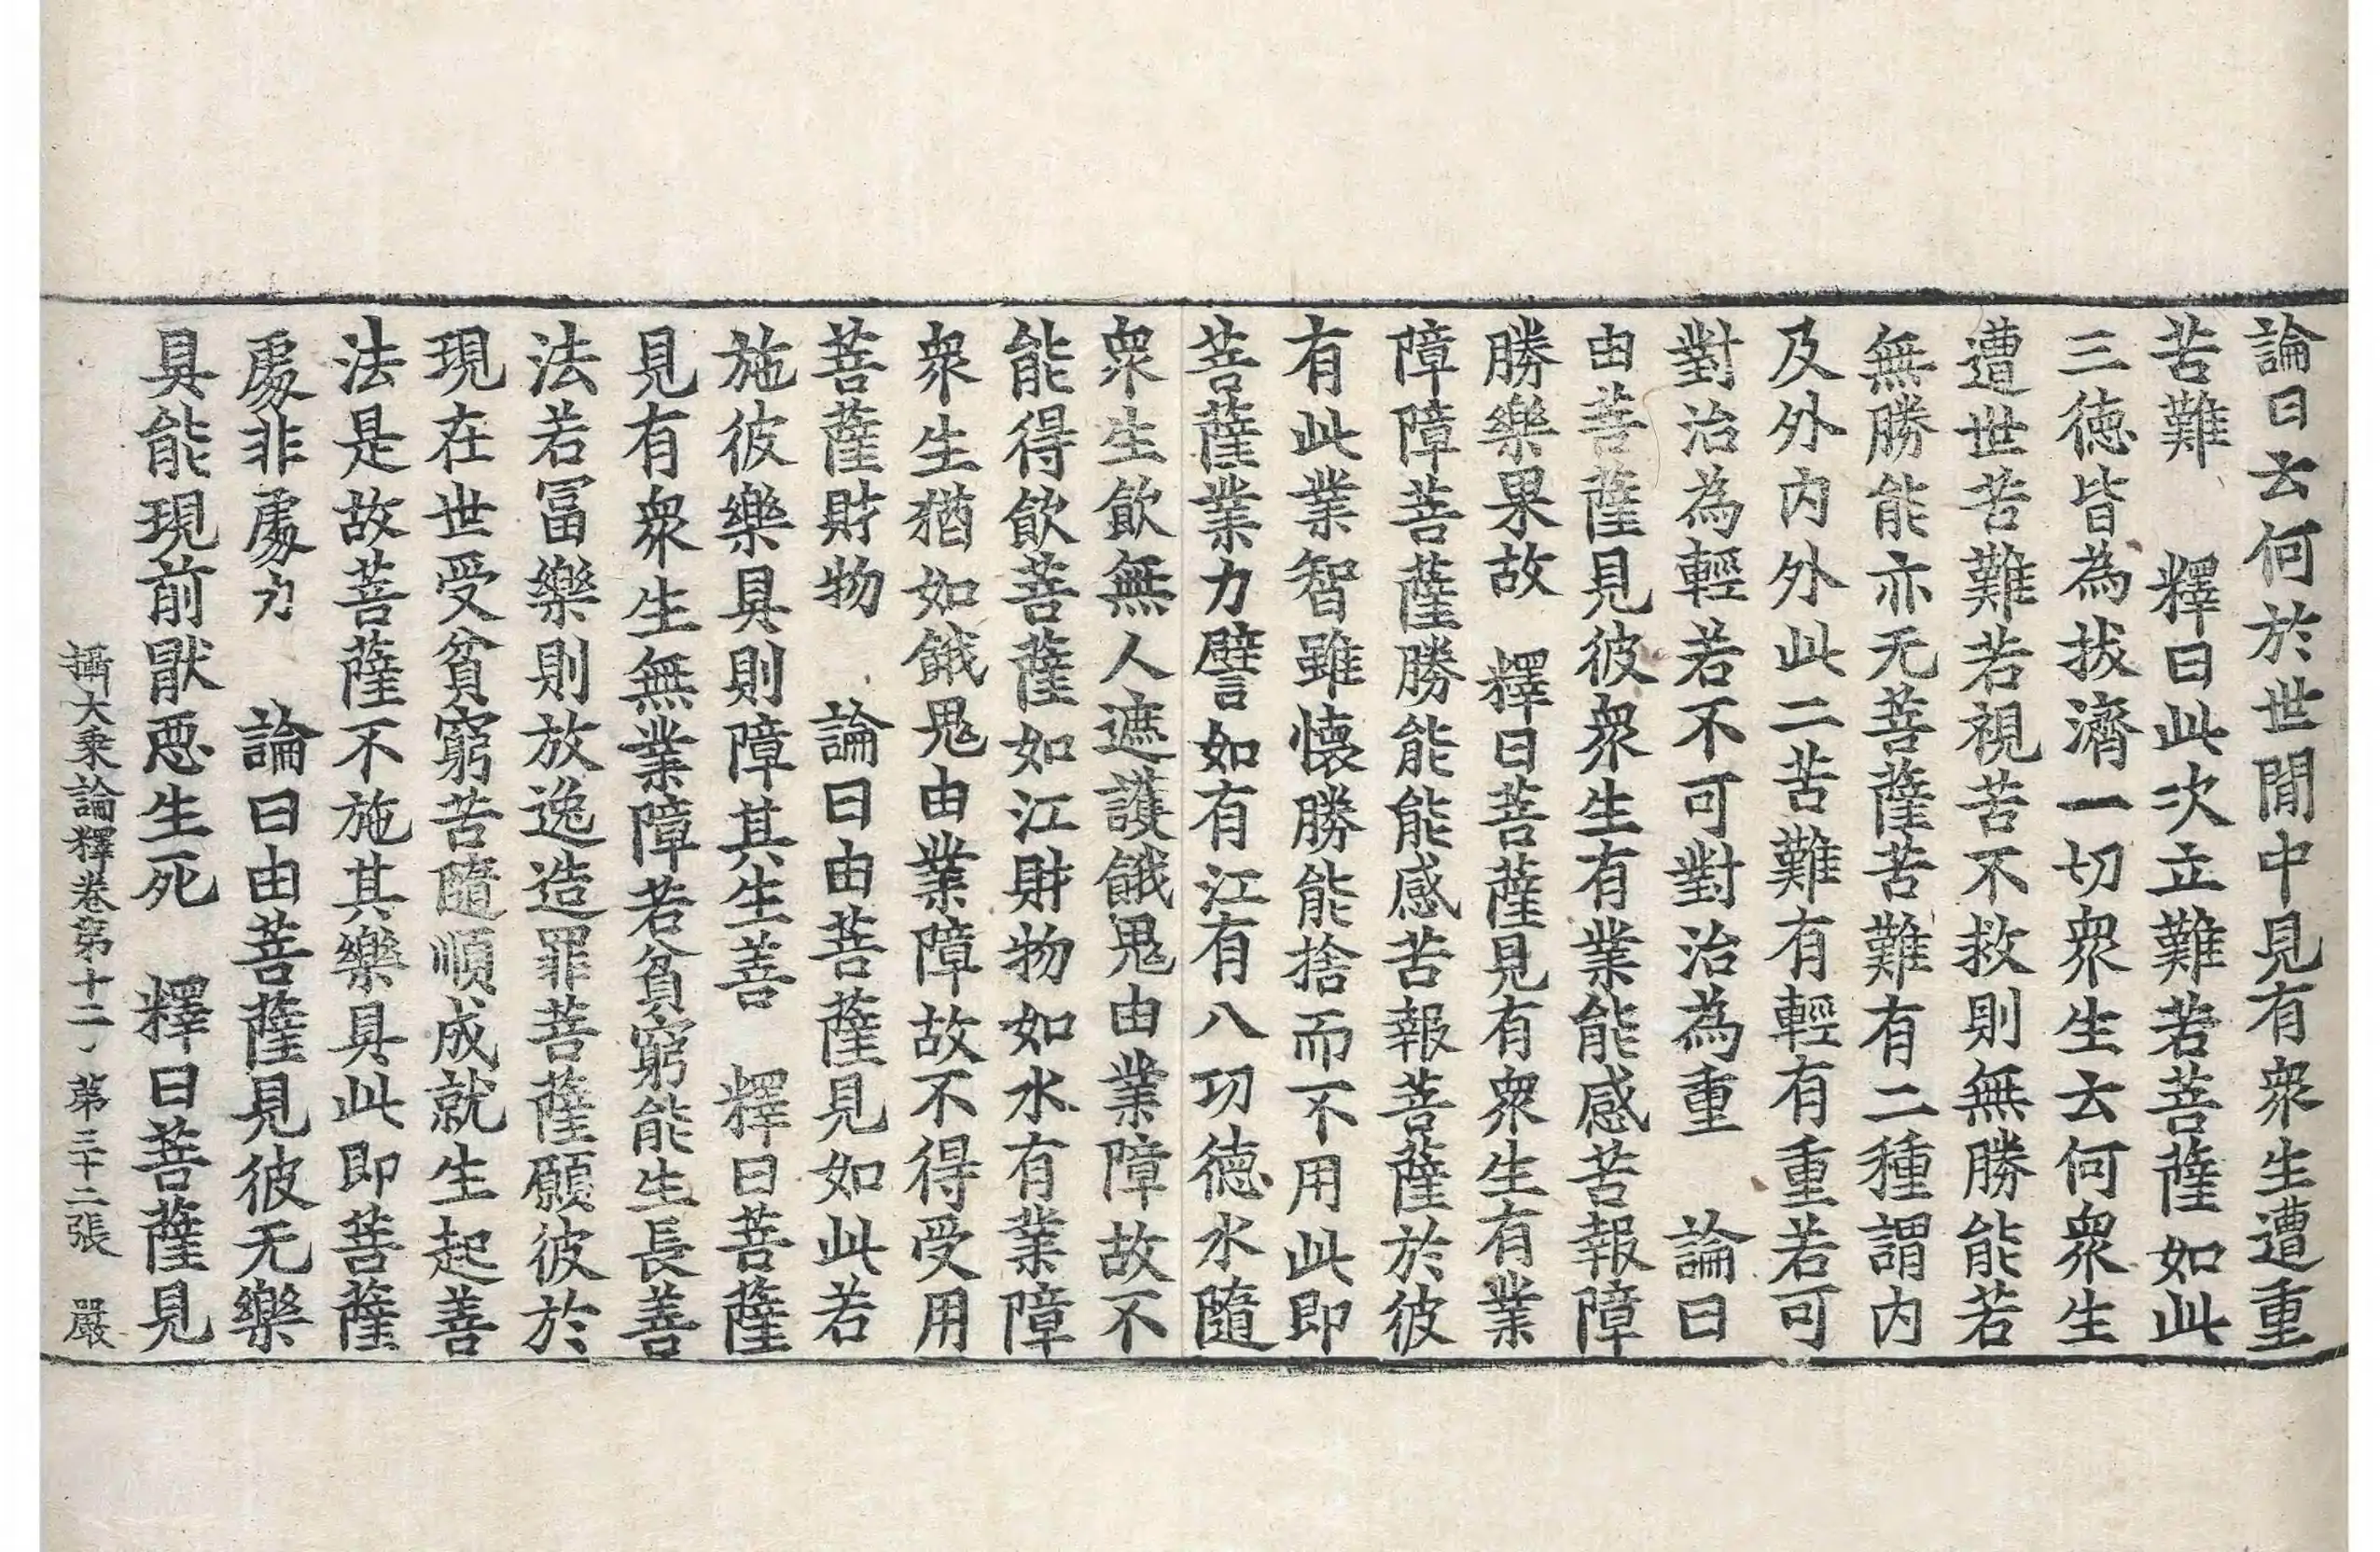 論曰云何於世間中見有衆生遭重
苦難　釋曰此次立難若菩薩如此
三德皆為拔濟一切衆生云何衆生
遭世苦難若視苦不救則無勝能若
無勝能亦无菩薩苦難有二種謂内
及外内外此二苦難有輕有重若可
對治為輕若不可對治為重　論曰
由菩薩見彼衆生有業能感苦報障
勝樂果故　釋曰菩薩見有衆生有業
障障菩薩勝能能感苦報菩薩於彼
有此業智雖懷勝能捨而不用此即
菩薩業力譬如有江有八功德水隨
衆生飲無人遮護餓鬼由業障故不
能得飲菩薩如江財物如水有業障
衆生猶如餓鬼由業障故不得受用
菩薩財物　論曰由菩薩見如此若
施彼樂具則障其生善　釋曰菩薩
見有衆生無業障若貧窮能生長善
法若冨樂則放逸造罪菩薩願彼於
現在世受貧窮苦隨順成就生起善
法是故菩薩不施其樂具此即菩薩
處非處力　論曰由菩薩見彼无樂
具能現前猒惡生死　釋曰菩薩見
攝大乗論釋卷第十二、第三十二張　嚴